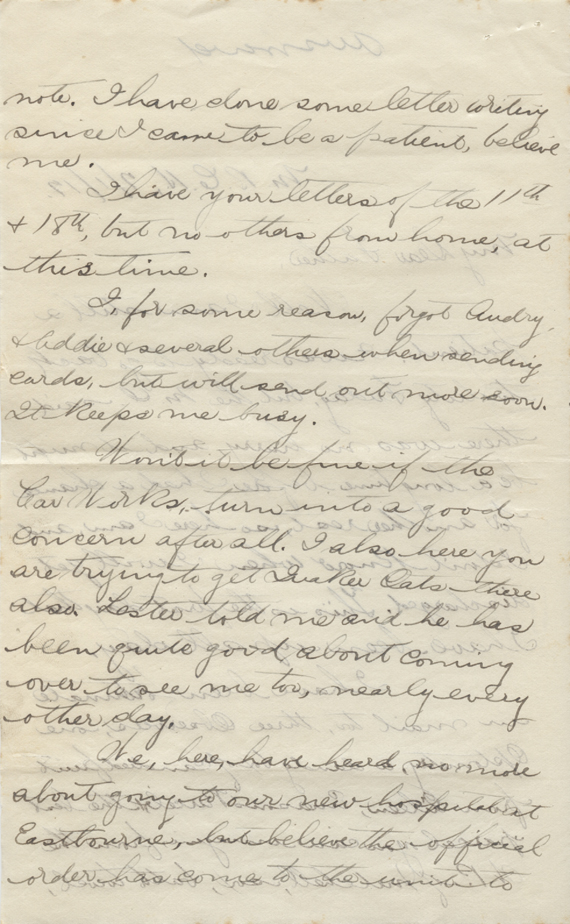 note. I have done some letter writing
since I came to be a patient, believe
me.
I have your letters of the 11th
& 18th, but no others from home, at
this time.
I, for some reason, forgot Audry,
& Eddie & several others when sending
cards, but will send out more soon.
It keeps me busy.
Won't it be fine if the
Car Works, turn into a good
concern after all. I also here you
are trying to get Quaker Oats there
also. Lester told me and he has
been quite good about coming
over to see me too, nearly every
other day.
We, here, have heard, no more
about going to our new hospital at
Eastbourne, but believe the official
order has come to, the unit to